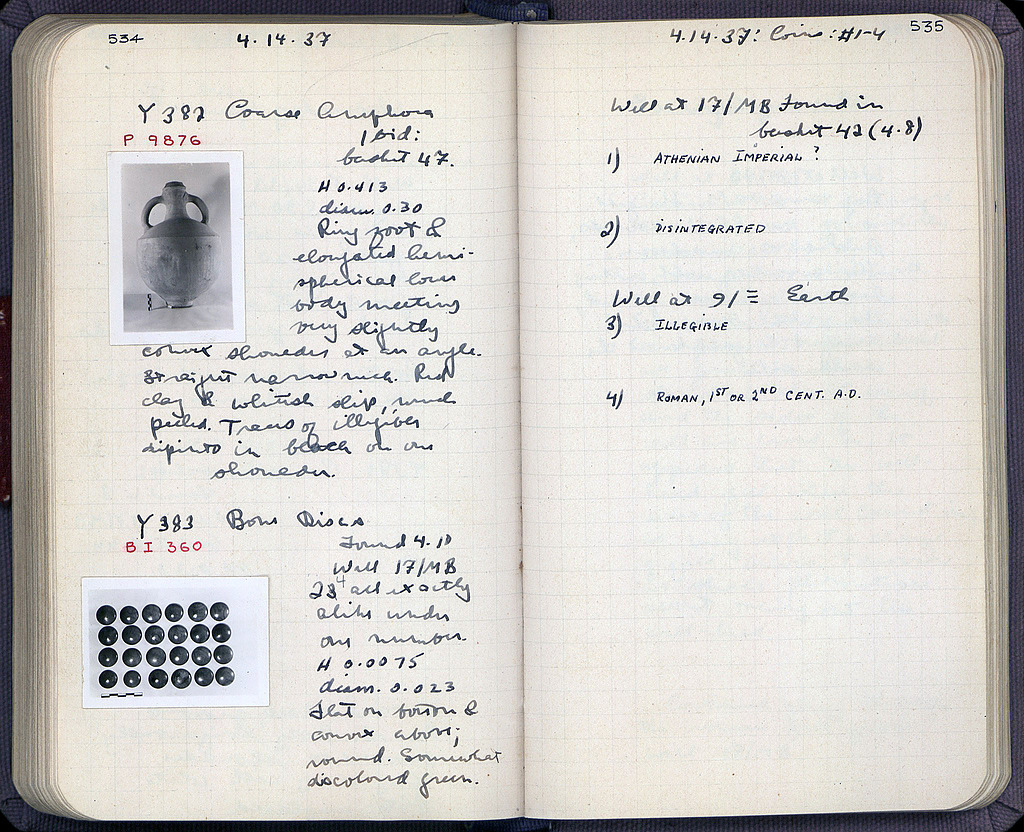 534
4.14.37
Y 382 Coarse Amphora
P 9876
Ibid:
basket 47.
H 0.413
diam. 0.30
Ring foot &
elongated hemi-
spherical lower
body meeting
very slightly
convex shoulder at an angle.
Straight narrow neck. Red
clay & whitish slip, much
peeled. Traces of illegible
dipinto in black on one
shoulder.
Y 383 Bone Discs
B I 360
Found 4.10
Well 17/MB
234 all exactly
alike under
one number.
H 0.0075
diam. 0.023
Flat on bottom &
convex above;
round. Somewhat
discolored green.
4.14.37: Coins: #1-4
535
Well at 17/MB Found in
basket 42 (4.8)
1) ATHENIAN IMPERIAL ?
2) DISINTEGRATED
Well at 91/Ξ Earth
3) ILLEGIBLE
4) ROMAN, 1ST OR 2ND CENT. A.D.